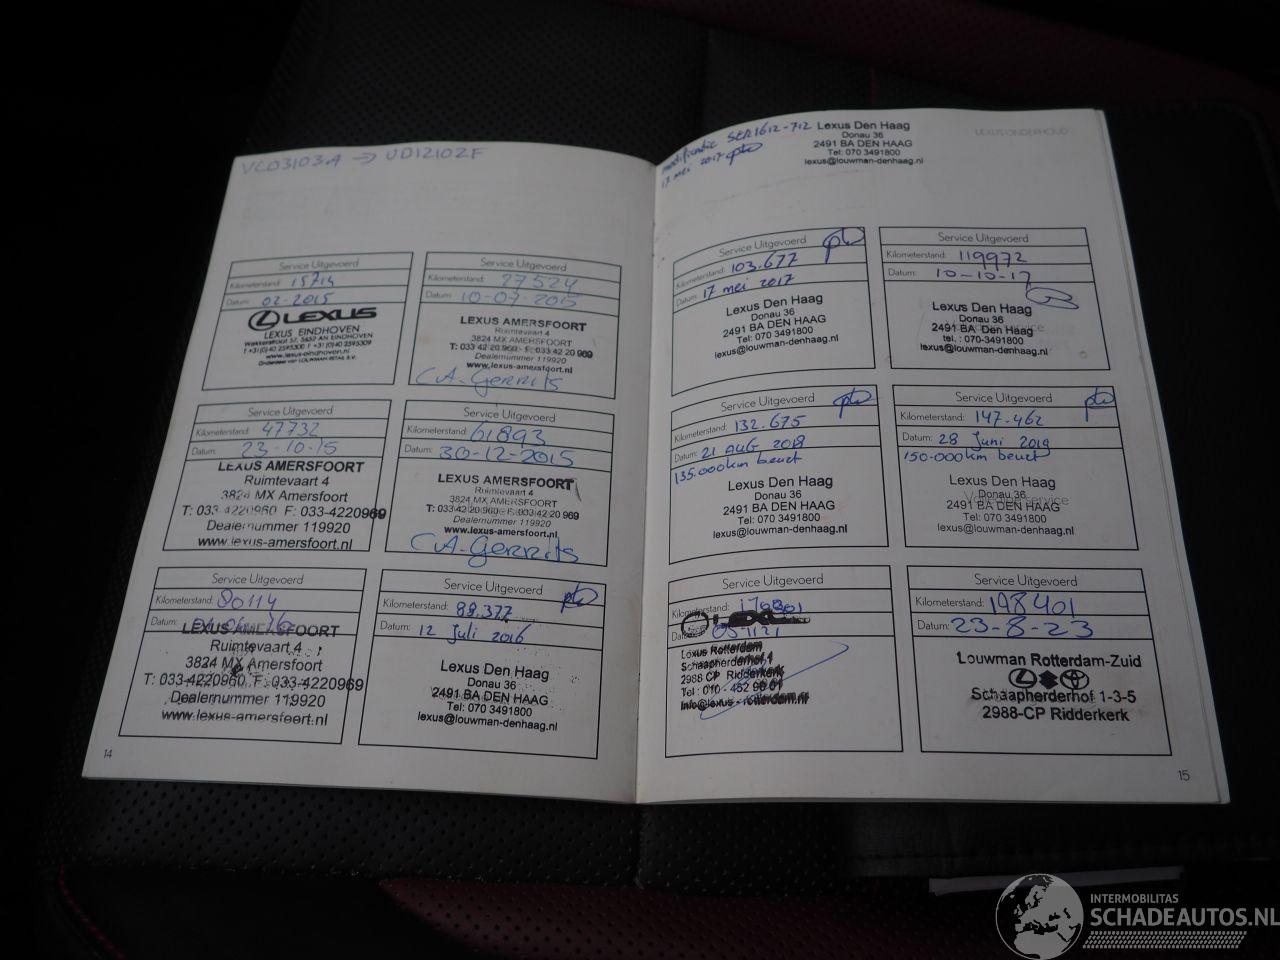 VC03103A → UD12102F
Service Uitgevoerd
Kilometerstand: 15714
Datum: 02-2015
LEXUS
LEXUS EINDHOVEN
www.lexus-eindhoven.nl
Service Uitgevoerd
Kilometerstand: 27524
Datum: 10-07-2015
LEXUS AMERSFOORT
Ruimtevaart 4
3824 MX AMERSFOORT
T: 033-42 20 969 F: 033-42 20 969
Dealernummer 119920
www.lexus-amersfoort.nl
CA-Gerrits
Service Uitgevoerd
Kilometerstand: 47732
Datum: 23-10-15
LEXUS AMERSFOORT
Ruimtevaart 4
3824 MX Amersfoort
T: 033-4220960 F: 033-4220969
Dealernummer 119920
www.lexus-amersfoort.nl
Service Uitgevoerd
Kilometerstand: 61893
Datum: 30-12-2015
LEXUS AMERSFOORT
Ruimtevaart 4
3824 MX AMERSFOORT
Dealernummer 119920
www.lexus-amersfoort.nl
CA-Gerrits
Service Uitgevoerd
Kilometerstand: 80114
Datum:
LEXUS AMERSFOORT
Ruimtevaart 4
3824 MX Amersfoort
T: 033-4220960 F: 033-4220969
Dealernummer 119920
www.lexus-amersfoort.nl
Service Uitgevoerd
Kilometerstand: 88.377
Datum: 12 Juli 2016
Lexus Den Haag
Donau 36
2491 BA DEN HAAG
Tel: 070 3491800
lexus@louwman-denhaag.nl
14
modificatie SER1612-712
17 mei 2017
Lexus Den Haag
Donau 36
2491 BA DEN HAAG
Tel: 070 3491800
lexus@louwman-denhaag.nl
LEXUS ONDERHOUD
Service Uitgevoerd
Kilometerstand: 103.677
Datum: 17 mei 2017
Lexus Den Haag
Donau 36
2491 BA DEN HAAG
Tel: 070 3491800
lexus@louwman-denhaag.nl
Service Uitgevoerd
Kilometerstand: 119972
Datum: 10-10-17
Lexus Den Haag
Donau 36
2491 BA Den Haag
tel. : 070-3491800
lexus@louwman-denhaag.nl
Service Uitgevoerd
Kilometerstand: 132.675
Datum: 21 AUG 2018
135.000km beurt
Lexus Den Haag
Donau 36
2491 BA DEN HAAG
Tel: 070 3491800
lexus@louwman-denhaag.nl
Service Uitgevoerd
Kilometerstand: 147.462
Datum: 28 Juni 2019
150.000km beurt
Lexus Den Haag
Donau 36
2491 BA DEN HAAG
Tel: 070 3491800
lexus@louwman-denhaag.nl
Service Uitgevoerd
Kilometerstand:
Lexus Rotterdam
Schaapherderhof 1
2988 CP Ridderkerk
Tel : 010 - 452 90 01
info@lexus-rotterdam.nl
Service Uitgevoerd
Kilometerstand: 198401
Datum: 23-8-23
Louwman Rotterdam-Zuid
Schaapherderhof 1-3-5
2988-CP Ridderkerk
15
INTERMOBILITAS
SCHADEAUTOS.NL